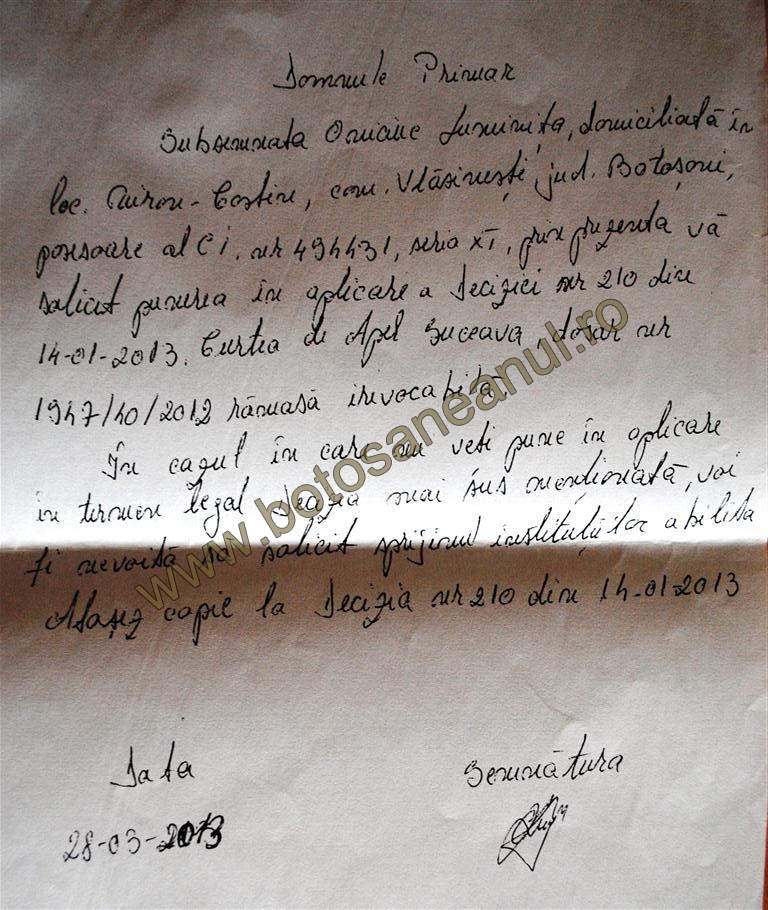 Domnule Primar
Subsemnata Oniciuc Luminița, domiciliată în
loc. Miron-Costin, com. Vlăsinești, jud. Botoșani,
posesoare al CI. nr 494431, seria XT, prin prezenta vă
solicit punerea în aplicare a Deciziei nr 210 din
14-01-2013. Curtea de Apel Suceava, dosar nr
1947/40/2012 rămasă irevocabilă.
În cazul în care nu veti pune în aplicare
in termen legal Decizia mai sus menționată, voi
fi nevoită să solicit sprijinul instituțiilor abilita
Atașez copie la Decizia nr 210 din 14-01-2013
Data
Semnătura
28-03-2013
www.botosaneanul.ro